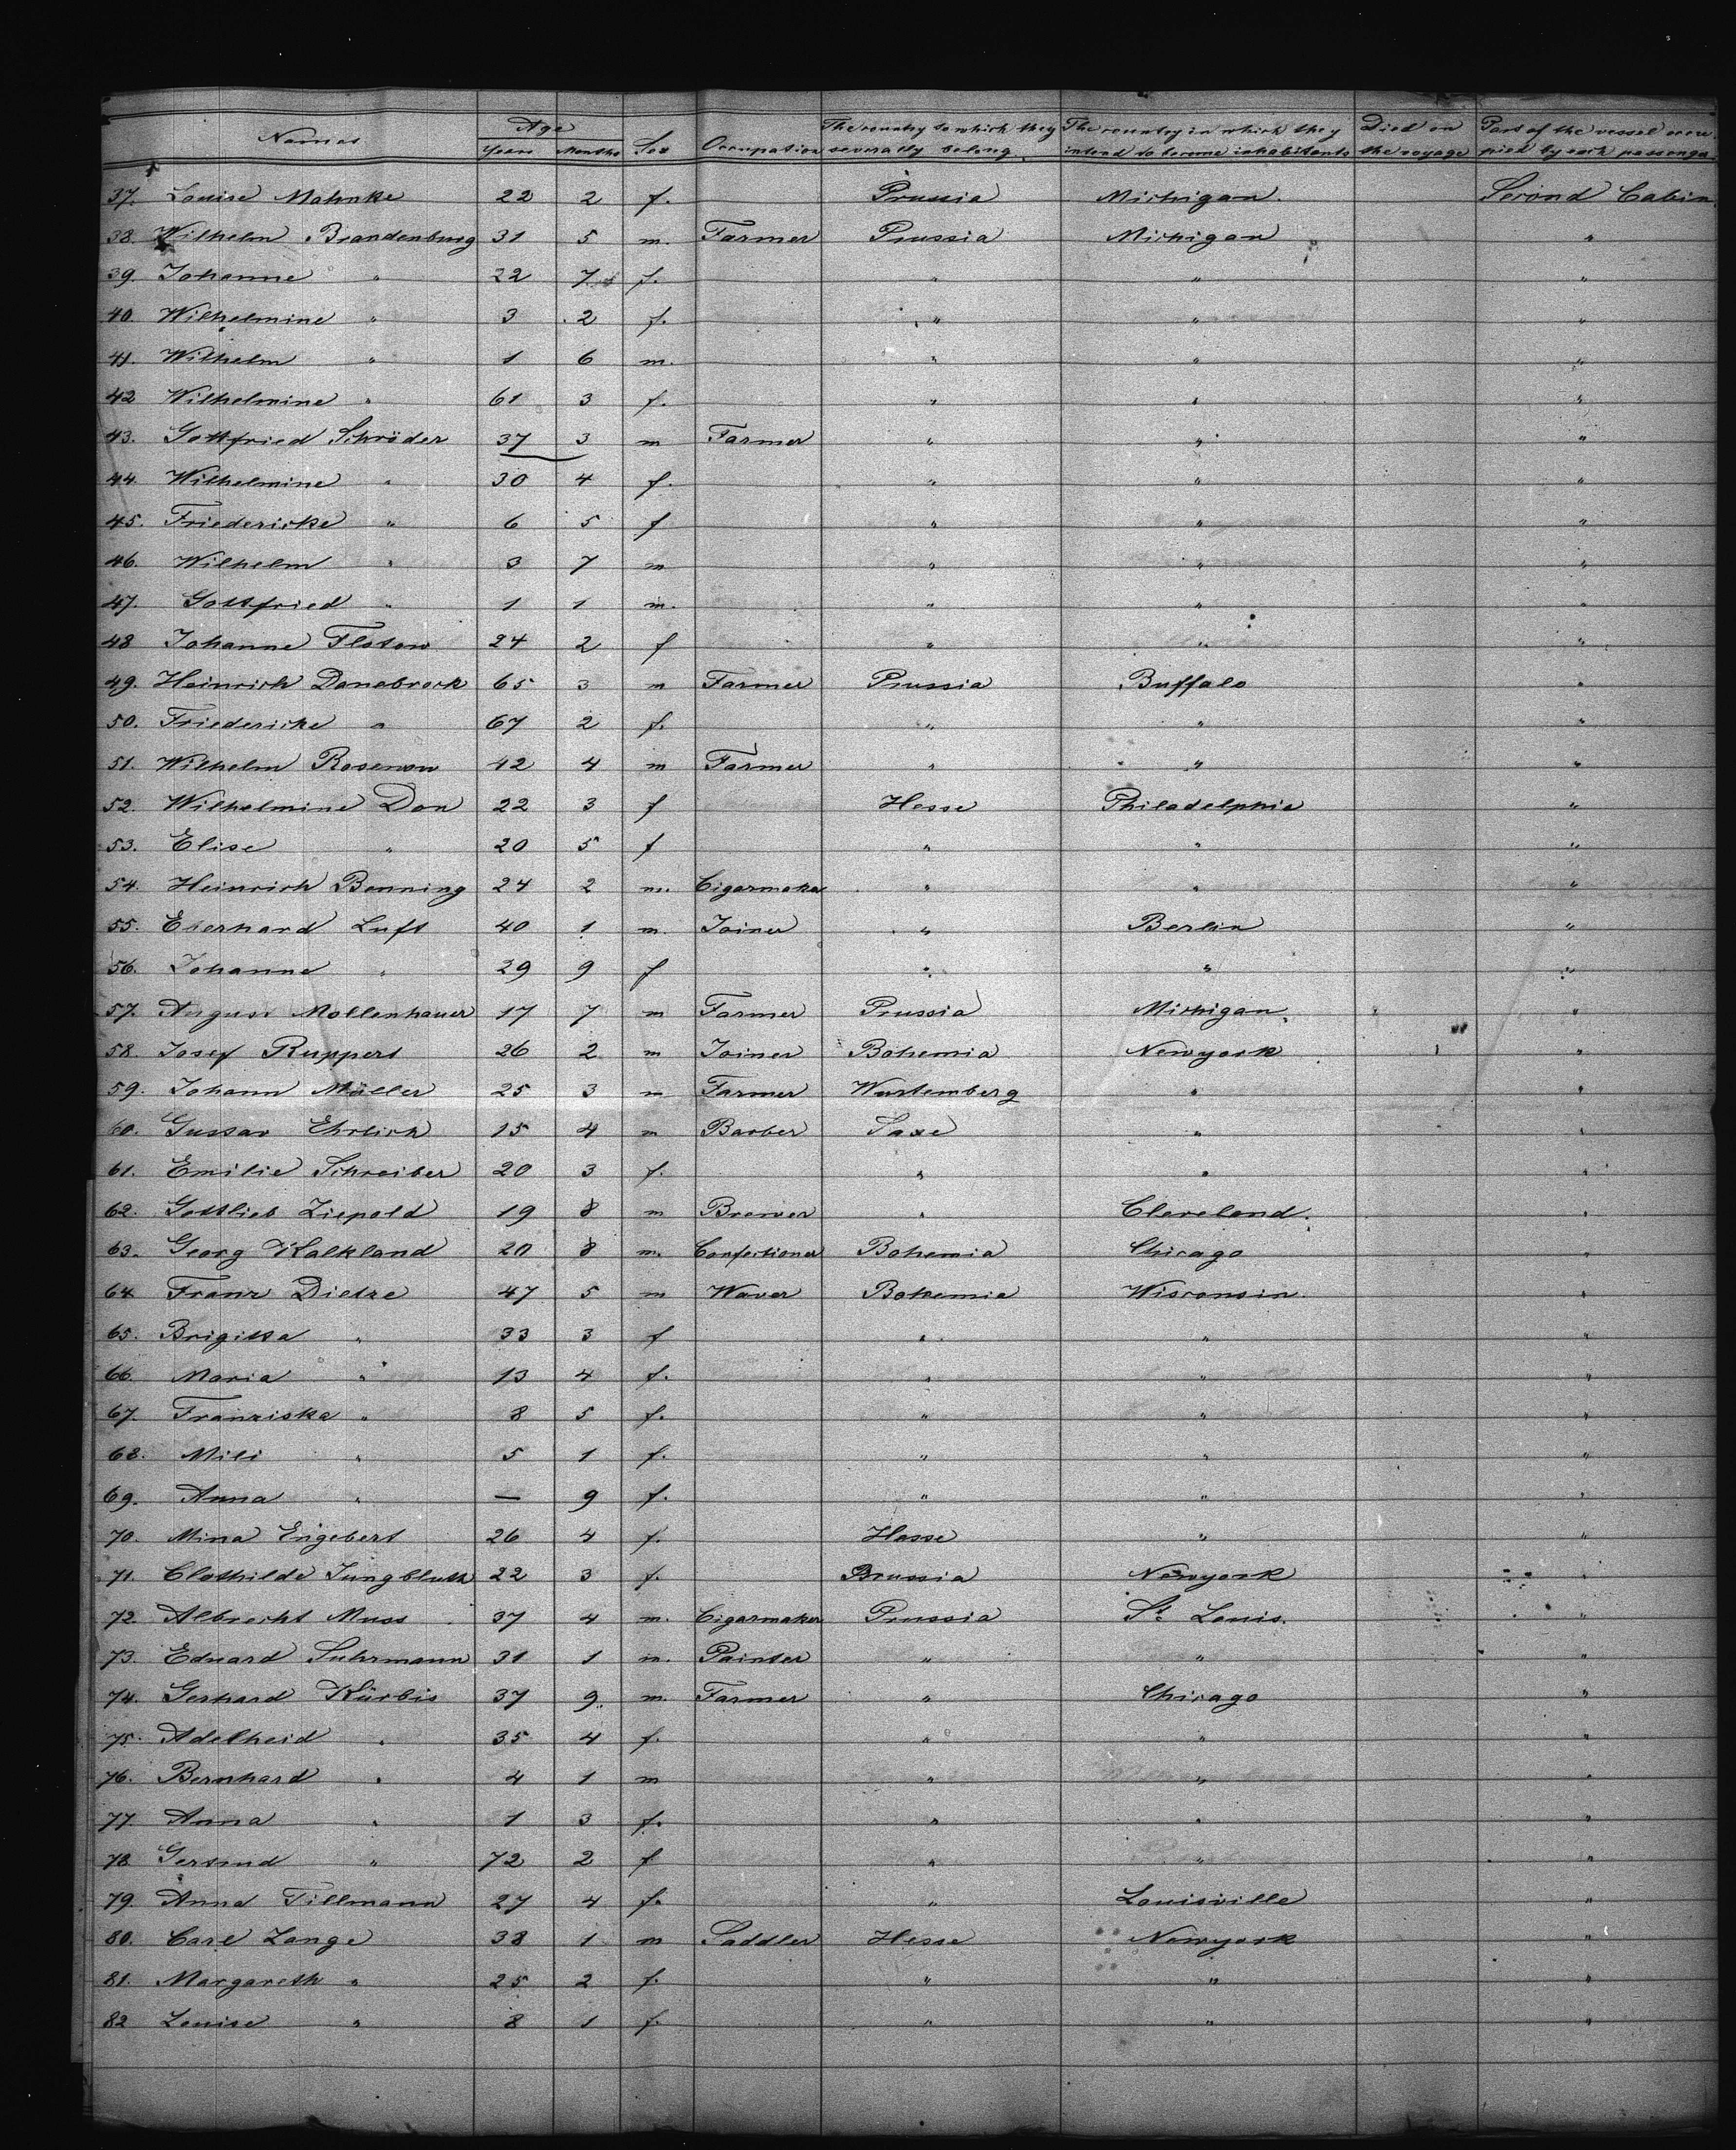 Names Age Years Months Sex Occupation The country to which they severally belong. The country in which they intend to become inhabitants Died on the voyage Part of the vessel occupied by each passenger.
37. Louise Mahnke 22 2 f. Prussia Michigan. Second Cabin.
38. Wilhelm Brandenburg 31 5 m. Farmer Prussia Michigan "
39. Johanne " 22 7 f. " " "
40. Wilhelmine " 3 2 f. " " "
41. Wilhelm " 1 6 m. " " "
42 Wilhelmine " 61 3 f. " " "
43. Gottfried Schröder 37 3 m Farmer " " "
44. Wilhelmine " 30 4 f. " " "
45. Friedericke " 6 5 f " " "
46. Wilhelm " 3 7 m " " "
47. Gottfried " 1 1 m. " " "
48 Johanne Flotow 24 2 f " " "
49. Heinrich Danebrock 65 3 m Farmer Prussia Buffalo "
50. Friedericke " 67 2 f. " " "
51. Wilhelm Rosenow 42 4 m Farmer " " "
52. Wilhelmine Don 22 3 f Hesse Philadelphia "
53. Elise " 20 5 f " " "
54. Heinrich Benning 24 2 m. Cigarmaker " " "
55. Eberhard Luft 40 1 m. Joiner " Berlin "
56. Johanne " 29 9 f " " "
57. August Mollenhauer 17 7 m Farmer Prussia Michigan. "
58. Josef Ruppert 26 2 m Joiner Bohemia Newyork "
59. Johann Müller 25 3 m Farmer Wurtemberg " "
60. Gustav Ehrlich 15 4 m Barber Saxe " "
61. Emilie Schreiber 20 3 f. " " "
62. Gottlieb Ziepold 19 8 m Brewer " Cleveland. "
63. Georg Kalkland 20 8 m. Confectioner Bohemia Chicago "
64 Franz Dietze 47 5 m Waver Bohemia Wisconsin. "
65. Brigitta " 33 3 f " " "
66. Maria " 13 4 f. " " "
67. Franziska " 8 5 f. " " "
68. Mili " 5 1 f. " " "
69. Anna " — 9 f. " " "
70. Mina Engebert 26 4 f. Hesse " "
71. Clothilde Jungbluth 22 3 f. Prussia Newyork "
72. Albrecht Muss 37 4 m. Cigarmaker Prussia St. Louis. "
73. Eduard Suhrmann 31 1 m. Painter " " "
74. Gerhard Kürbis 37 9. m. Farmer " Chicago "
75. Adelheid " 35 4 f. " " "
76. Bernhard " 4 1 m " " "
77. Anna " 1 3 f. " " "
78 Gertrud " 72 2 f " " "
79. Anna Tillmann 27 4 f. " Louisville "
80. Carl Lange 38 1 m Saddler Hesse Newyork "
81. Margareth " 25 2 f. " " "
82 Louise " 8 1 f. " " "